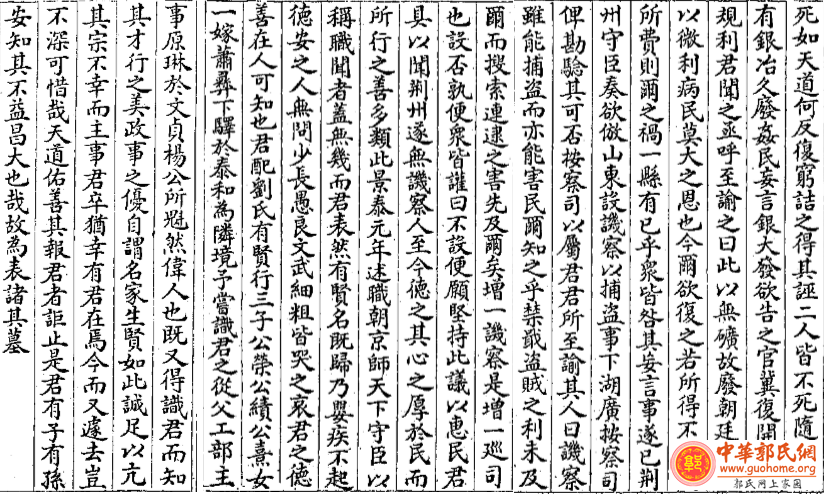 死如天道何反復窮詰之得其誣二人皆不死隨
有銀冶久廢姦民妄言銀大發欲告之官冀復開
規利君聞之亟呼至諭之曰此以無礦故廢朝廷
以微利病民莫大之恩也今爾欲復之若所得不
所費則爾之禍一縣有已乎衆皆咎其妄言事遂已荆
州守臣奏欲倣山東設譏察以捕盜事下湖廣按察司
俾勘驗其可否按察司以屬君君所至諭其人曰譏察
雖能捕盜而亦能害民爾知之乎禁戢盜賊之利未及
爾而搜索連逮之害先及爾矣增一譏察是增一廵司
也設否孰便衆皆讙曰不設便願堅持此議以惠民君
具以聞荆州遂無譏察人至今德之其心之厚於民而
所行之善多類此景泰元年述職朝京師天下守臣以
稱職聞者蓋無幾而君表然有賢名既歸乃嬰疾不起
德安之人無問少長愚良文武細粗皆哭之哀君之德
善在人可知也君配劉氏有賢行三子公榮公績公熹女
一嫁蕭彞下驛於泰和為隣境予嘗識君之從父工部主
事原琳於文貞楊公所魁然偉人也既又得識君而知
其才行之美政事之優自謂名家生賢如此誠足以亢
其宗不幸而主事君卒猶幸有君在焉今而又遽去豈
不深可惜哉天道佑善其報君者詎止是君有子有孫
安知其不益昌大也哉故為表諸其墓
中華郭氏網
www.guohome.net
郭氏网上家園